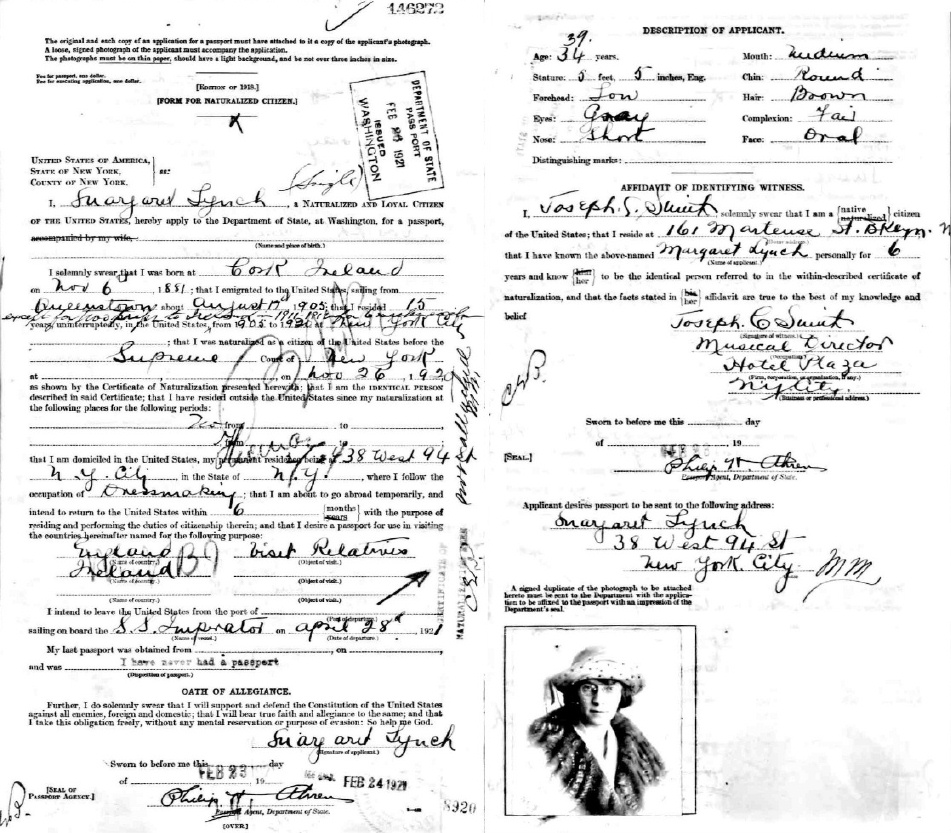 146272
The original and each copy of an application for a passport must have attached to it a copy of the applicant's photograph.
A loose, signed photograph of the applicant must accompany the application.
The photographs must be on this paper, should have a light background, and be not over three inches in size.
Fee for passport, one dollar.
Fee for executing application, one dollar.
[EDITION OF 1918.]
[FORM FOR NATURALIZED CITIZEN.]
X
DEPARTMENT OF STATE
PASSPORT
FEB 1921
ISSUED
WASHINGTON
UNITED STATES OF AMERICA,
STATE OF NEW YORK,
COUNTY OF NEW YORK.
ss:
(Single)
I, Margaret Lynch, A NATURALIZED AND LOYAL CITIZEN
OF THE UNITED STATES, hereby apply to the Department of State, at Washington, for a passport,
accompanied by my wife,
(Name and place of birth.)
I solemnly swear that I was born at Cork Ireland
on Nov 6 1881; that I emigrated to the United States, sailing from
Queenstown about August 17th 1905; that I resided 15
years, uninterruptedly, in the United States, from 1905 to 1920 at New York City
; that I was naturalized as a citizen of the United States before the
Supreme Court of New York
at , on Nov 26, 1920
as shown by the Certificate of Naturalization presented herewith; that I am the IDENTICAL PERSON
described in said Certificate; that I have resided outside the United States since my naturalization at
the following places for the following periods:
No from to
from to
that I am domiciled in the United States, my permanent residence being at 38 West 94 st
N.Y. City, in the State of N.Y., where I follow the
occupation of Dressmaking; that I am about to go abroad temporarily, and
intend to return to the United States within 6 {months years} with the purpose of
residing and performing the duties of citizenship therein; and that I desire a passport for use in visiting
the countries hereinafter named for the following purpose:
England Visit Relatives
(Name of country.) (Object of visit.)
Ireland
(Name of country.) (Object of visit.)
(Name of country.) (Object of visit.)
I intend to leave the United States from the port of
(Port of departure.)
sailing on board the S.S. Imprator on April 28th, 1921
(Name of vessel.) (Date of departure.)
My last passport was obtained from , on ,
and was I have never had a passport
(Disposition of passport.)
OATH OF ALLEGIANCE.
Further, I do solemnly swear that I will support and defend the Constitution of the United States
against all enemies, foreign and domestic; that I will bear true faith and allegiance to the same; and that
I take this obligation freely, without any mental reservation or purpose of evasion: So help me God.
Margaret Lynch
(Signature of applicant.)
Sworn to before me this day
of FEB 23 19 FEB 24 1921
[SEAL OF
PASSPORT AGENCY.]
Philip H. Ahren
Passport Agent, Department of State.
[OVER]
8920
DESCRIPTION OF APPLICANT.
39.
Age: 34 years. Mouth: Medium
Stature: 5 feet, 5 inches, Eng. Chin: Round
Forehead: Low Hair: Brown
Eyes: Gray Complexion: Fair
Nose: Short Face: Oval
Distinguishing marks:
AFFIDAVIT OF IDENTIFYING WITNESS.
I, Joseph C. Smith, solemnly swear that I am a {native naturalized} citizen
of the United States; that I reside at 161 Martense St. BKlyn. N
that I have known the above-named Margaret Lynch personally for 6
(Name of applicant.)
years and know {him her} to be the identical person referred to in the within-described certificate of
naturalization, and that the facts stated in {his her} affidavit are true to the best of my knowledge and
belief
Joseph. C Smith
(Signature of witness.)
Musical Director
(Occupation.)
Hotel Plaza
(Firm, corporation, or organization, if any.)
NY City
(Business or professional address.)
Sworn to before me this day
of FEB 23 19
[SEAL.]
Philip H. Ahren
Passport Agent, Department of State.
Applicant desires passport to be sent to the following address:
Margaret Lynch
38 West 94 St
New York. City
MM
A signed duplicate of the photograph to be attached
hereto must be sent to the Department with the applica-
tion to be affixed to the passport with an impression of the
Department's seal.